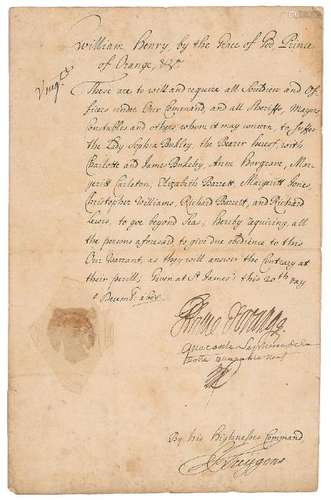 William Henry, by the Grace of God, Prince
of Orange, &c
These are to will and require all Souldiers and Of-
ficers under Our Command, and all Sheriffs, Mayors
Constables and others whom it may concern, to suffer
the Lady Sophia Bulkley, the Bearer hereof, with
Charlott and James Bulkeley, Anne Hargrave, Mar-
garett Carleton, Elizabeth Barrett, Margaritt Jones,
Christopher Williams, Richard Barrett, and Richard
Lewis, to goe beyond Seas, hereby requiring all
the persons aforesaid to give due obedience to this
Our Warrant, as they will answer the Contrary at
their perill. Given at St James's this 20th day
of Decemb.
Prince d'Orange
By his Highnesses Command
C Huygens